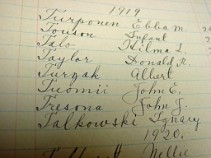 1919
Turponen Ebba M.
Touson Infant
Talo Hilma L.
Taylor Donald R.
Turzak Albert
Tuomii John E.
Tresona John J.
Talkowski Ignacy
1920.
Nellie